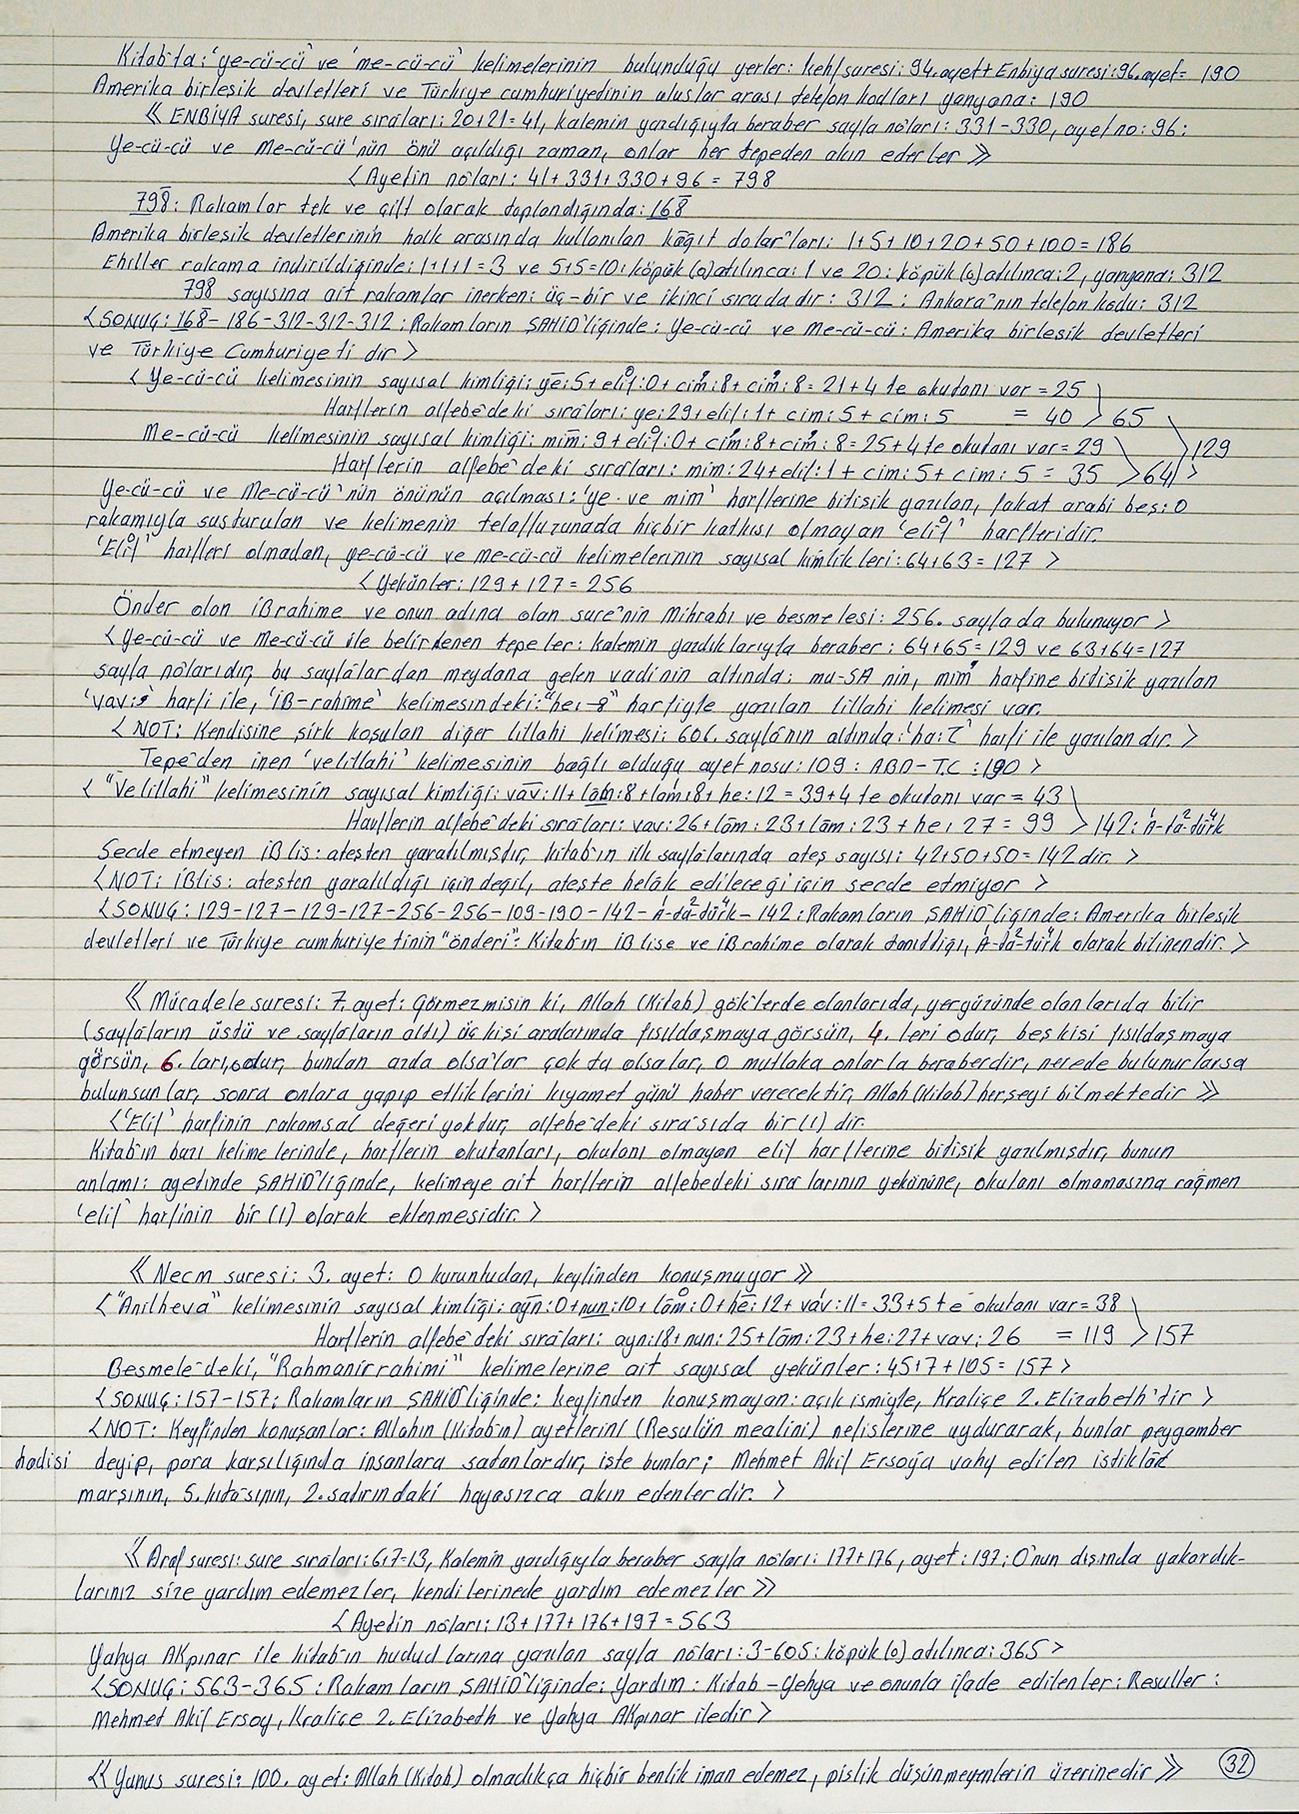 Kitab'ta: 'ye-cü-cü' ve 'me-cü-cü' kelimelerinin bulunduğu yerler: kehf suresi: 94. ayet + Enbiya suresi: 96. ayet = 190
Amerika birleşik devletleri ve Türkiye cumhuriyedinin uluslar arası telefon kodları yanyana: 190
《 ENBİYA suresi, sure sıraları: 20+21=41, kalemin yazdığıyla beraber sayfa noları: 331-330, ayet no: 96:
Ye-cü-cü ve Me-cü-cü'nün önü açıldığı zaman, onlar her tepeden akın ederler 》
< Ayetin noları: 41+331+330+96 = 798
798: Rakamlar tek ve çift olarak toplandığında: 168
Amerika birleşik devletlerinin halk arasında kullanılan kâğıt dolar'ları: 1+5+10+20+50+100 = 186
Ehiller rakama indirildiğinde: 1+1+1=3 ve 5+5=10: köpük (o) atılınca: 1 ve 20: köpük (o) atılınca: 2, yanyana: 312
798 sayısına ait rakamlar inerken: üç-bir ve ikinci sıradadır: 312: Ankara'nın telefon kodu: 312
< SONUÇ: 168-186-312-312-312: Rakamların ŞAHİD'liğinde: Ye-cü-cü ve Me-cü-cü: Amerika birleşik devletleri
ve Türkiye Cumhuriyeti dir >
< Ye-cü-cü kelimesinin sayısal kimliği: ye: 5+elif: 0+cim: 8+cim: 8 = 21+4 te okutanı var = 25
Harflerin alfebe'deki sıraları: ye: 29+elif: 1+cim: 5+cim: 5 = 40 > 65
Me-cü-cü kelimesinin sayısal kimliği: mim: 9+elif: 0+cim: 8+cim: 8 = 25+4 te okutanı var = 29 > 129
Harflerin alfebe'deki sıraları: mim: 24+elif: 1+cim: 5+cim: 5 = 35 > 64 >
Ye-cü-cü ve Me-cü-cü'nün önünün açılması: 'ye ve mim' harflerine bitişik yazılan, fakat arabi beş: o
rakamıyla susturulan ve kelimenin telaffuzunada hiçbir katkısı olmayan 'elif' harfleridir.
'Elif' harfleri olmadan, ye-cü-cü ve me-cü-cü kelimelerinin sayısal kimlikleri: 64+63 = 127 >
< Yekünler: 129+127 = 256
Önder olan iBrahime ve onun adına olan sure'nin Mihrabı ve besmelesi: 256. sayfada bulunuyor >
< Ye-cü-cü ve Me-cü-cü ile belirlenen tepeler: kalemin yazdıklarıyla beraber: 64+65=129 ve 63+64=127
sayfa nolarıdır, bu sayfalardan meydana gelen vadinin altında: mu-SA nin, mim harfine bitişik yazılan
'vav: و' harfi ile, 'iB-rahime' kelimesindeki: "he: ه" harfiyle yazılan lillahi kelimesi var.
< NOT: Kendisine şirk koşulan diğer lillahi kelimesi: 606. sayfanın altında: 'ha: ح' harfi ile yazılandır. >
Tepe'den inen 'velillahi' kelimesinin bağlı olduğu ayet nosu: 109: ABD-T.C: 190 >
< "Velillahi" kelimesinin sayısal kimliği: vav: 11+lâm: 8+lâm: 8+he: 12 = 39+4 te okutanı var = 43
Harflerin alfebe'deki sıraları: vav: 26+lâm: 23+lâm: 23+he: 27 = 99 > 142: A-ta²-türk⁴
Secde etmeyen iBlis: ateşten yaratılmıştır, kitab'ın ilk sayfalarında ateş sayısı: 42+50+50=142 dir. >
< NOT: iBlis: ateşten yaratıldığı için değil, ateşte helâk edileceği için secde etmiyor >
< SONUÇ: 129-127-129-127-256-256-109-190-142-A-ta²-türk⁴-142: Rakamların ŞAHİD'liğinde: Amerika birleşik
devletleri ve Türkiye cumhuriyetinin "önderi": Kitab'ın iBlise ve iBrahime olarak tanıttığı, A-ta²-türk⁴ olarak bilinendir. >
《 Mücadele suresi: 7. ayet: Görmezmisin ki, Allah (Kitab) gök'lerde olanlarıda, yeryüzünde olanlarıda bilir
(sayfaların üstü ve sayfaların altı) üç kişi aralarında fısıldaşmaya görsün, 4. leri odur, beş kişi fısıldaşmaya
görsün, 6. ları, odur, bundan azda olsa'lar çok ta olsalar, o mutlaka onlarla beraberdir, nerede bulunurlarsa
bulunsunlar, sonra onlara yapıp ettiklerini kıyamet günü haber verecektir, Allah (Kitab) herşeyi bilmektedir 》
< 'Elif' harfinin rakamsal değeri yokdur, alfebe'deki sıra'sıda bir (1) dir.
Kitab'ın bazı kelimelerinde, harflerin okutanları, okutanı olmayan elif harflerine bitişik yazılmışdır, bunun
anlamı: ayetinde ŞAHİD'liğinde, kelimeye ait harflerin alfebedeki sıralarının yekününe, okutanı olmamasına rağmen
'elif' harfinin bir (1) olarak eklenmesidir. >
《 Necm suresi: 3. ayet: O kuruntudan, keyfinden konuşmuyor 》
< "Anilheva" kelimesinin sayısal kimliği: ayn: 0+nun: 10+lâm: 0+he: 12+vav: 11 = 33+5 te okutanı var = 38
Harflerin alfebe'deki sıraları: ayn: 18+nun: 25+lâm: 23+he: 27+vav: 26 = 119 > 157
Besmele'deki, "Rahmanirrahimi" kelimelerine ait sayısal yekünler: 45+7+105 = 157 >
< SONUÇ: 157-157: Rakamların ŞAHİD'liğinde: keyfinden konuşmayan: açık ismiyle, Kraliçe 2. Elizabeth'dir >
< NOT: Keyfinden konuşanlar: Allahın (Kitab'ın) ayetlerini (Resulün mealini) nefislerine uydurarak, bunlar peygamber
hadisi deyip, para karşılığında insanlara satanlardır, işte bunlar; Mehmet Akif Ersoy'a vahy edilen istiklâl
marşının, 5. kıta'sının, 2. satırındaki hayasızca akın edenlerdir. >
《 Araf suresi: sure sıraları: 6+7=13, Kalemin yazdığıyla beraber sayfa noları: 177+176, ayet: 197: O'nun dışında yakardık-
larınız size yardım edemezler, kendilerinede yardım edemezler 》
< Ayetin noları: 13+177+176+197 = 563
Yahya AKpınar ile kitab'ın hududlarına yazılan sayfa noları: 3-605: köpük (o) atılınca: 365 >
< SONUÇ: 563-365: Rakamların ŞAHİD'liğinde: Yardım: Kitab-Yahya ve onunla ifade edilenler: Resuller:
Mehmet Akif Ersoy, Kraliçe 2. Elizabeth ve Yahya AKpınar iledir >
《 Yunus suresi: 100. ayet: Allah (Kitab) olmadıkça hiçbir benlik iman edemez, pislik düşünmeyenlerin üzerinedir 》 32